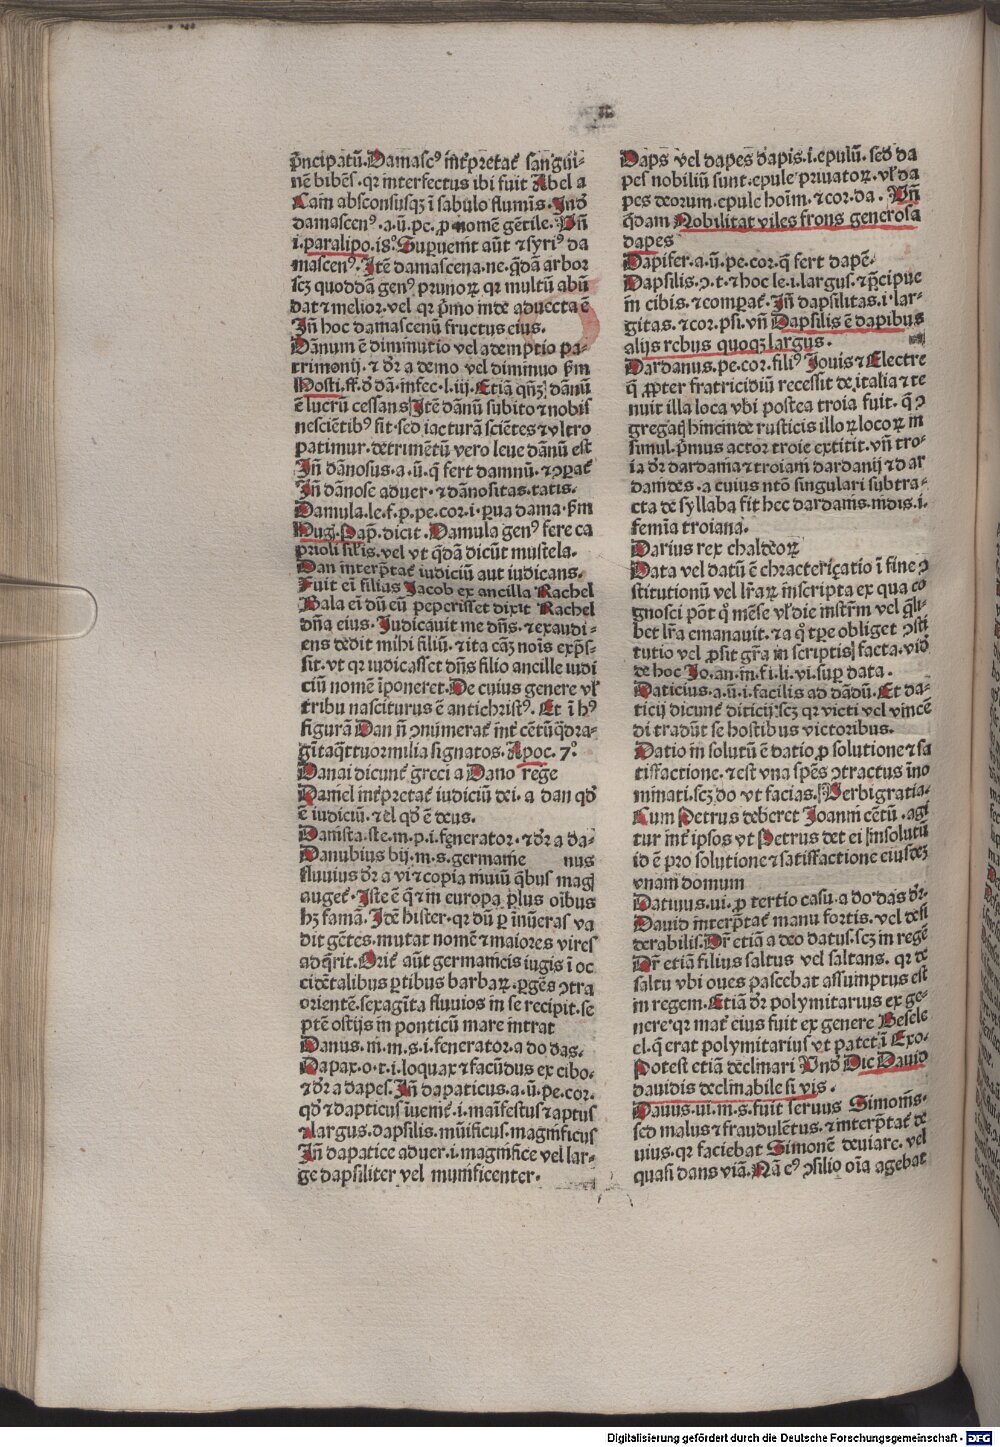 p̄ncipatū. Damascꝰ int̄pretat̄ sangui-
nē bibēs. qr interfectus ibi fuit Abel a
Cain absconsusqꝫ ī sabulo fluminis. Inđ
damascenꝰ .a.ū.pe. ꝓ nomē gētile. Vn̄
i.paralipo.i8°. Supuenit aūt ⁊ syriꝰ da
mascenꝰ. Itē damascena.ne.q̄dā arbor
scꝫ quoddā genꝰ prunoꝝ qr multū abū
dat ⁊ melior. vel qr p̄mo inde aduecta ē
Jn̄ hoc damascenū fructus eius.
Dānum ē diminutio vel ademptio pa-
trimonij. ⁊ dr̄ a demo vel diminuo ẜm
Hosti.ff.đ dā.infec.l.iij. Etiā qn̄ꝫ dānū
ē lucrū cessans Itē dānū subito ⁊ nobis
nesciētibꝰ fit. sed iacturā sciētes ⁊ vltro
patimur. detrimētū vero leue dānū est
Jn̄ dānosus .a.ū. q̄ fert damnū. ⁊ ꝯꝑat̄
Jn̄ dānose aduer. ⁊ dānositas.tatis.
Damula.le.f.p.pe.cor.i.ꝑua dama. ẜm
Hug. Pap̄. dicit. Damula genꝰ fere ca
prioli silis. vel vt q̄dā dicūt mustela.
Dan interp̄tat̄ iudiciū aut iudicans.
Fuit ei filius Jacob ex ancilla Rachel
Bala ei dū eū peperisset dixit Rachel
dn̄a eius. Judicauit me dn̄s. ⁊ exaudi-
ens dedit mihi filiū. ⁊ ita cāꝫ nois exp̄s-
sit. vt qr iudicasset dn̄s filio ancille iudi
ciū nomē īponeret. De cuius genere vł
tribu nasciturus ē antichristꝰ. Et ī hꝰ
figurā Dan n̄ ꝯnumerat̄ int̄ cētū q̄dra-
gīta q̄ttuor milia signatos. Apoc. 7°.
Danai dicunt̄ greci a Dano rege
Daniel int̄pretat̄ iudiciū dei. a dan qđ
ē iudiciū. ⁊ el qđ ē deus.
Danista.ste.m.p.i.fenerator. ⁊ dr̄ a da-
Danubius bij.m.s.germanie nus
fluuius dr̄ a vi ⁊ copia niuiū q̄bus mag
auget̄. Iste ē q̄ ⁊ in europa plus oibus
hꝫ famā. Idē hister. qr dū ꝑ īnūeras va
dit gētes. mutat nomē ⁊ maiores vires
adq̄rit. Orit̄ aūt germanicis iugis ī oc
cidētalibus ꝑtibus barbaꝝ. ꝑgēs ꝯtra
orientē. sexagīta fluuios in se recipit. se
ptē ostijs in ponticū mare intrat
Danus.ni.m.s.i.fenerator. a do das.
Dapax.o.t.i.loquax ⁊ facūdus ex cibo.
⁊ dr̄ a dapes. Jn̄ dapaticus.a.ū.pe.cor.
qđ ⁊ dapticus īuenit̄.i.maīfestus ⁊ aptus
⁊ largus. dapsilis. mūificus. magnificus
Jn̄ dapatice aduer.i.magnifice vel lar-
ge dapsiliter vel munificenter.
Daps vel dapes dapis.i.epulū. sed da
pes nobiliū sunt. epule priuatoꝝ. vł da
pes deorum. epule hoīm. ⁊ cor.da. Vn̄
q̄dam Nobilitat viles frons generosa
dapes
Dapifer.a.ū.pe.cor. q̄ fert dapē.
Dapsilis.ꝯ.t. ⁊ hoc le.i.largus. ⁊ p̄cipue
in cibis. ⁊ comparat̄. Jn̄ dapsilitas.i.lar-
gitas. ⁊ cor.psi. vn̄ Dapsilis ē dapibus
alijs rebus quoqꝫ largus.
Dardanus.pe.cor. filiꝰ Jouis ⁊ Electre
q̄ ꝓpter fratricidiū recessit de italia ⁊ te
nuit illa loca vbi postea troia fuit. q̄ ꝯ
gregaq̄ hincinde rusticis illoꝝ locoꝝ in
simul. p̄mus actor troie extitit. vn̄ tro-
ia dr̄ dardania ⁊ troiani dardanij ⁊ dar
danides. a cuius ntō singulari subtra-
cta de syllaba fit hec dardanis.nidis.i.
femīa troiana.
Darius rex chaldeoꝝ
Data vel datū ē chractericatio ī fine ꝯ
stitutionū vel lr̄aꝝ inscripta ex qua co
gnosci pōt q̊ mēse vł die instr̄m vel q̄li-
bet lr̄a emanauit. ⁊ a q̊ tꝑe obliget ꝯsti
tutio vel ꝓsit gr̄a in scriptis facta. viđ
de hoc Jo.an.in.fi.li.vi.suꝑ data.
Daticius.a.ū.i. facilis ad dādū. Et da-
ticij dicunt̄ diticij. scꝫ qr victi vel vincē
di tradūt se hostibus victoribus.
Datio in solutū ē datio ꝓ solutione ⁊ sa
tisfactione. ⁊ est vna spēs ꝯtractus īno
minati. scꝫ do vt facias. Verbi gratia.
Cum Petrus deberet Joanni cētū. agi
tur int̄ ipsos vt Petrus det ei insolutū
id ē pro solutione ⁊ satisfactione eiusdēꝫ
vnam domum
Datiuus.ui. ꝓ tertio casu. a do das dr̄.
Dauid interp̄tat̄ manu fortis. vel desi
derabilis. Dr̄ etiā a deo datus. scꝫ in regē
Dr̄ etiā filius saltus vel saltans. qr de
saltu vbi oues pascebat assumptus est
in regem. Etiā dr̄ polymitarius ex ge-
nere. qr mat̄ eius fuit ex genere Besele
el. q̄ erat polymitarius vt patet ī Exo.
Potest etiā declinari Vnđ Dic Dauid
dauidis declinabile si vis.
Dauus.ui.m.s.fuit seruus Simonis.
sed malus ⁊ fraudulētus. ⁊ interp̄tat̄ de
uius. qr faciebat Simonē deuiare. vel
quasi dans viā. Nā eꝰ ꝯsilio oīa agebat
Digitalisierung gefördert durch die Deutsche Forschungsgemeinschaft - DFG